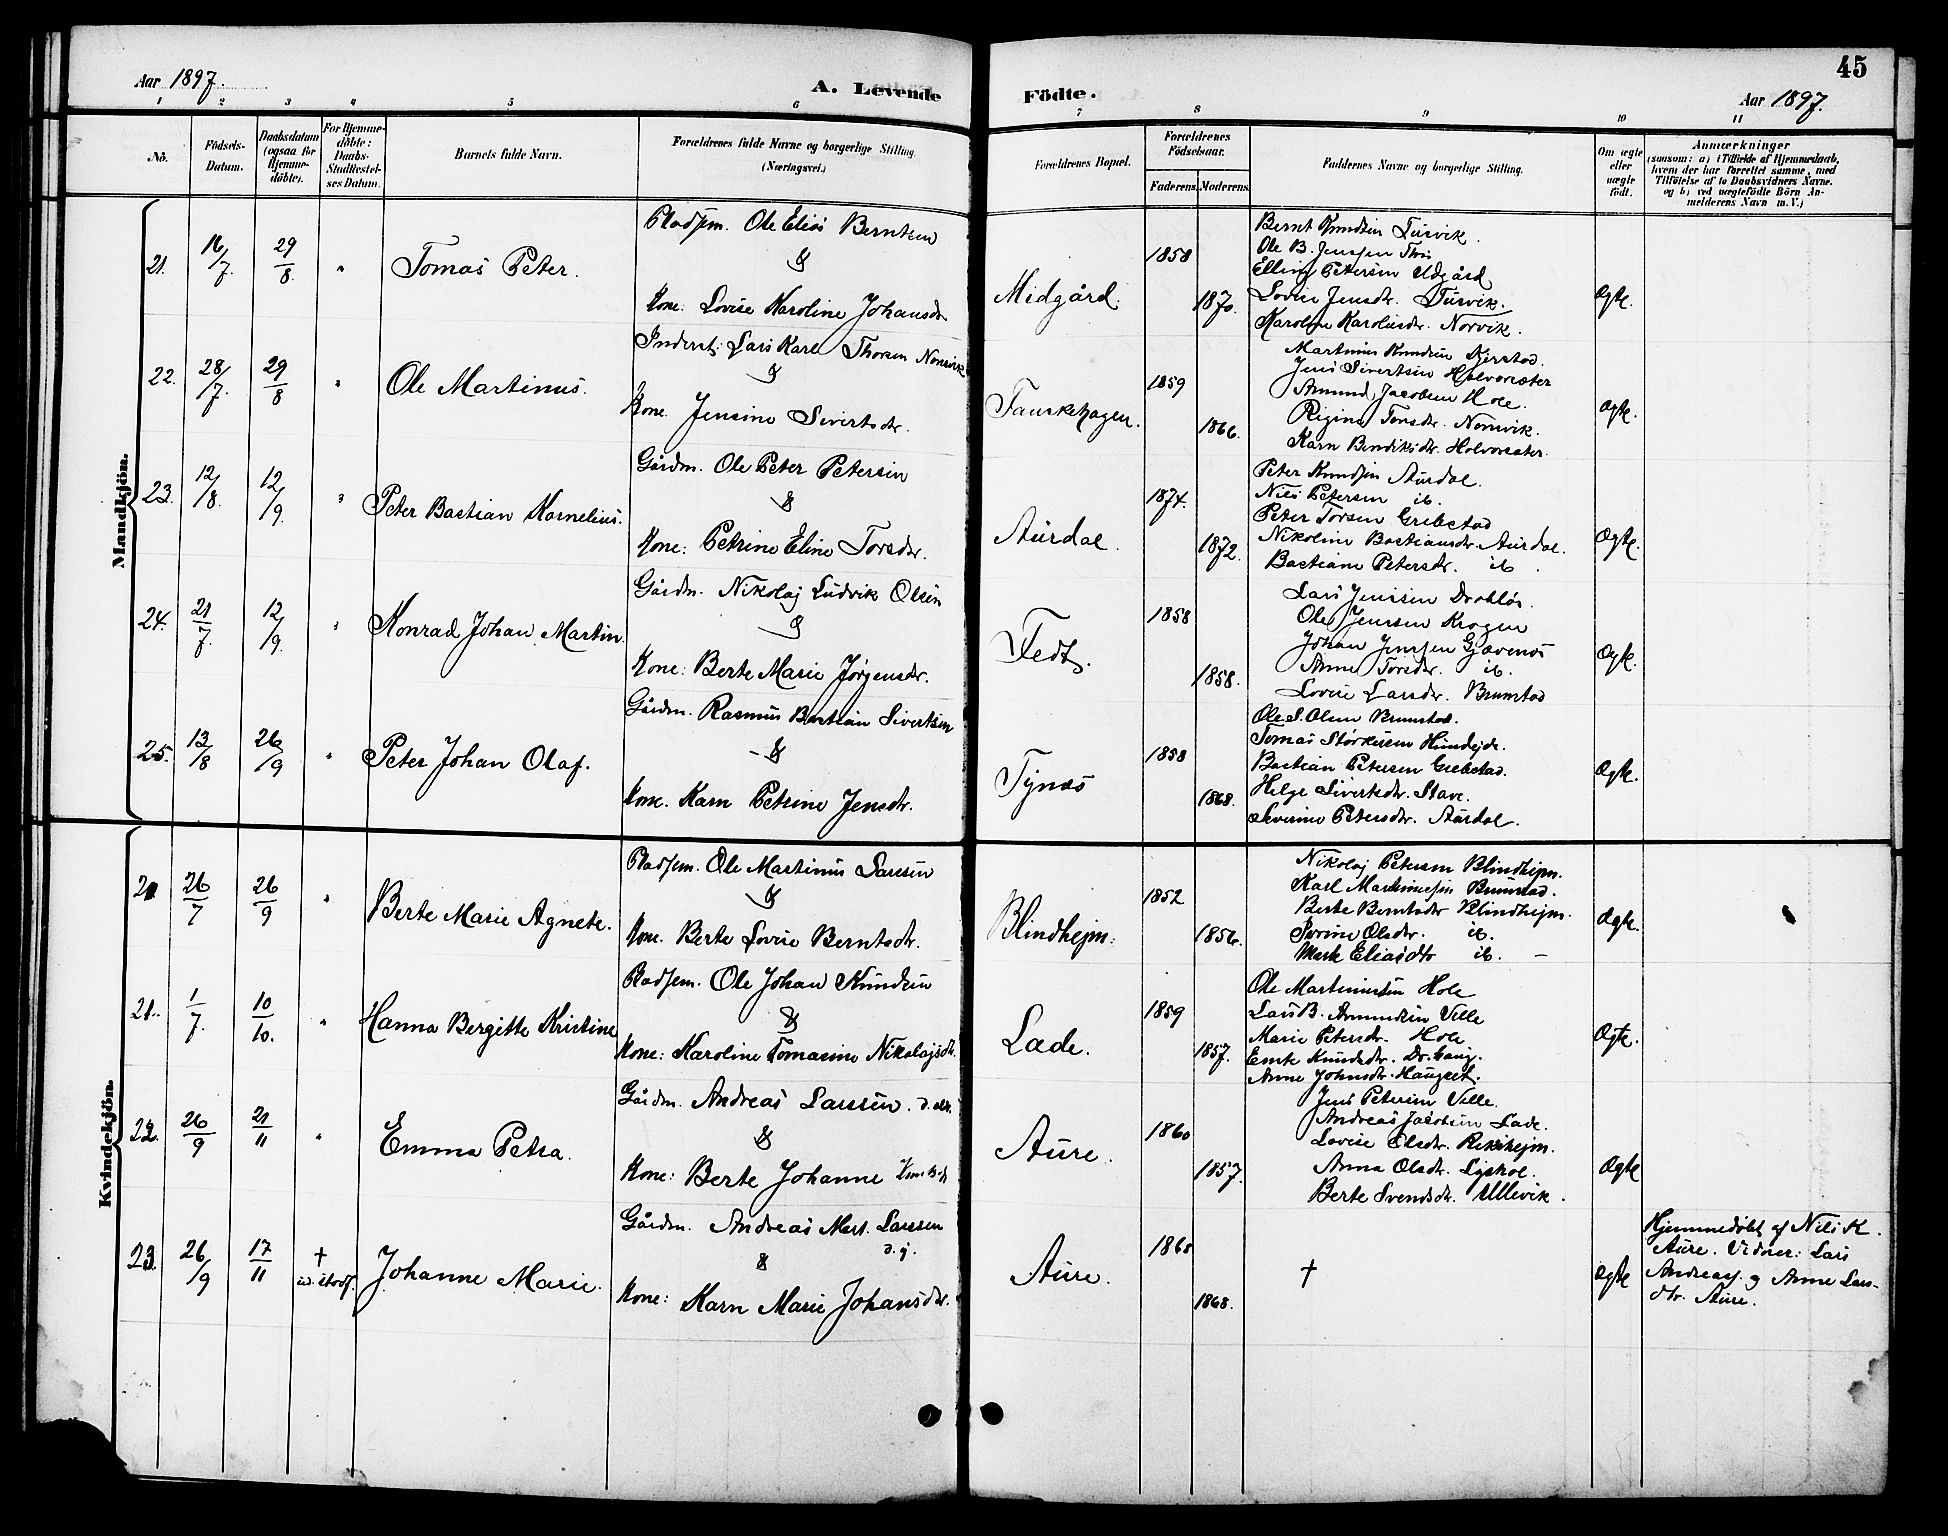 45
Aar 1897.
A. Levende Födte.
Aar 1897.
1 2 3 4 5 6 7 8 9 10 11
No.
Födsels-Datum.
Daabsdatum (ogsaa for Hjemme-döbte).
For Hjemme-döbte: Daabs-Stadfæstel-ses Datum.
Barnets fulde Navn.
Forældrenes fulde Navne og borgerlige Stilling.
(Næringsvei.)
Forældrenes Bopæl.
Forældrenes Födselsaar.
Faderens. Moderens.
Faddernes Navne og borgerlige Stilling.
Om ægte eller uægte födt.
Anmærkninger
(saasom: a) i Tilfælde af Hjemmedaab,
hvem der har forrettet samme, med
Tilföielse af to Daabsvidners Navne.
og b) ved uægtefödte Börn An-
melderens Navn m. V.)
Mandkjön.
21. 16/7. 29/8. " Tomas Peter.
Pladsm. Ole Elias Berntsen
&
Kone: Lovise Karoline Johansdr
Midgård. 1858 1870.
Bernt Knudsen Tusvik.
Ole B. Jensen
Elling Petersen Udgård
Lovise Jensdr. Tusvik.
Karoline Karolusdr. Norvik.
Ægte.
22. 28/7. 29/8 " Ole Martinus.
Inderst: Lars Karl Thorsen Nonsvik
&
Kone. Jensine Sivertsdr.
Fauskehagen. 1859 1866.
Martinus Knudsen Kjerstad.
Jens Sivertsen Holvoresæter
Amund Jacobsen Hole.
Regine Torsdr. Nonsvik.
Karn Bendiksdr. Holvoresæter.
Ægte.
23. 12/8. 12/9. " Peter Bastian Kornelius.
Gårdm. Ole Peter Petersen
&
Kone: Petrine Eline Torsdr.
Aurdal. 1874. 1872.
Peter Knudsen Aurdal.
Nils Petersen ib.
Peter Torsen Grebstad
Nikoline Bastiansdr. Aurdal.
Bastiane Petersdr. ib.
Ægte.
24. 21/7. 12/9. " Konrad Johan Martin.
Gårdm. Nikolaj Ludvik Olsen
&
Kone: Berte Marie Jørgensdr.
Fedt. 1858 1858.
Lars Jenssen Drabløs.
Ole Jenssen Krogen
Johan Jenssen Gjævenes
Anne Torsdr. ib.
Lovise Larsdr. Brunstad
Ægte.
25. 13/8 26/9 " Peter Johan Olaf.
Gårdm. Rasmus Bastian Sivertsen
&
Kone. Karn Petrine Jensdr.
Tynæs 1858 1868.
Ole S. Olsen Brunstad.
Tomas Størkersen
Bastian Petersen Grebstad.
Helge Sivertsdr. Stave.
Petersdr. Aurdal.
Ægte.
Kvindekjön.
26/7 26/9 " Berte Marie Agnete.
Pladsm. Ole Martinus Larssen
&
Kone. Berte Lovise Berntsdr.
Blindhejm: 1852 1856.
Nikolaj Petersen Blindhejm.
Karl Martinussen Brunstad.
Berte Berntsdr Blindhejm.
Serine Olsdr. ib.
Eliasdtr ib. -
Ægte.
21. 1/7. 10/10. " Hanna Bergitte Kristine
Pladsm. Ole Johan Knudsen
&
Kone: Karoline Tomasine Nikolajsdr.
Lade. 1859 1857.
Ole Martinussen Hole
Lars B. Amundsen Ville
Marie Petersdr. Hole
Knudsdr.
Anne Johnsdr. Haugset.
Ægte.
22. 26/9 21/11 " Emma Petra.
Gårdm. Andreas Larssen. d. eldr.
&
Kone: Berte Johanne
Aure. 1860 1857.
Jens Petersen Ville.
Andreas Jacobsen Lade.
Lovise Olsdr. Rekshejm.
Anna Olsdr. Lyshol.
Berte Svendsdr. Ullevik.
Ægte
23. 26/9 17/11 † Johanne Marie.
Gårdm. Andreas Mart. Larssen
d. y.
&
Kone: Karn Marie Johansdr.
Aure. 1868.
†
Ægte
Hjemmedøbt af Nils K.
Aure. Vidner: Lars
Andreas. og Anne Lars-
dtr. Aure.